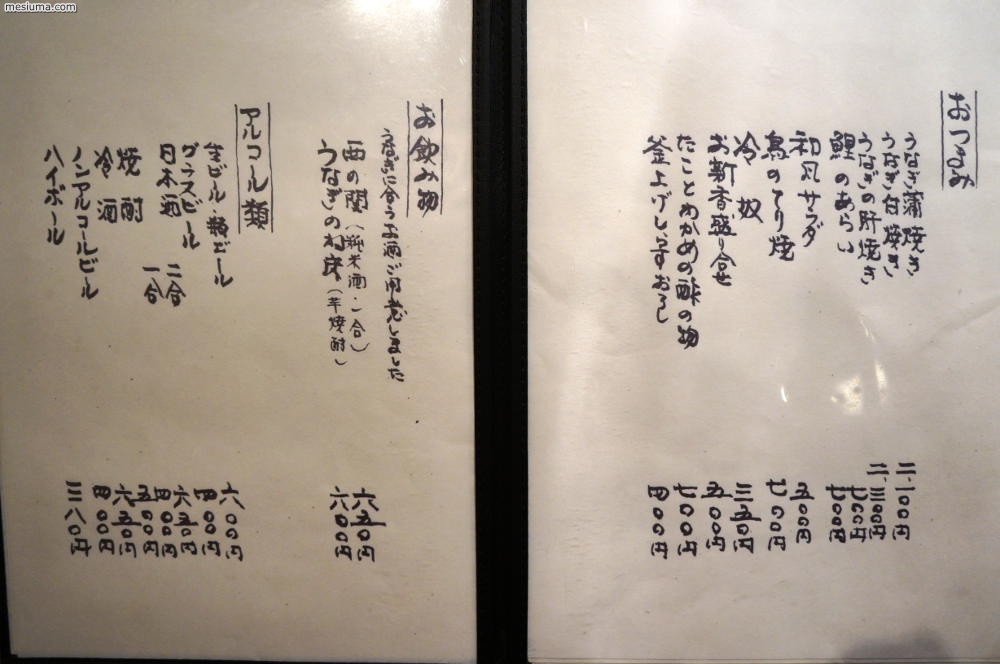 mesiuma.com
おつまみ
うなぎ蒲焼き 二、一〇〇円
うなぎ白焼き 二、三〇〇円
うなぎの肝焼き 七〇〇円
鯉のあらい 七〇〇円
和風サラダ 五〇〇円
鳥のてり焼 七〇〇円
冷奴 三五〇円
お新香盛り合せ 五〇〇円
たことわかめの酢の物 七〇〇円
釜上げしらすおろし 四〇〇円
お飲み物
うなぎに合うお酒ご用意しました
西の関(純米酒・一合) 六五〇円
うなぎの寝床(芋焼酎) 六〇〇円
アルコール類
生ビール・瓶ビール 六〇〇円
グラスビール 四〇〇円
日本酒 二合 六五〇円
一合 四〇〇円
焼酎 五〇〇円
冷酒 六五〇円
ノンアルコールビール 四〇〇円
ハイボール 三八〇円